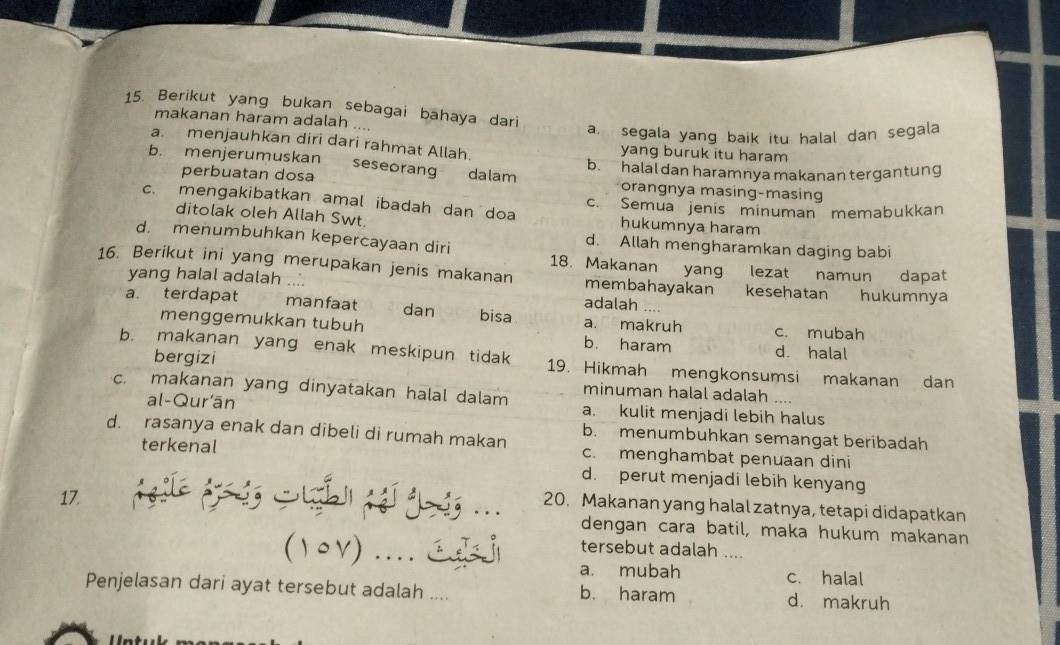 15. Berikut yang bukan sebagai bahaya dari
makanan haram adalah ....
a. menjauhkan diri dari rahmat Allah.
b. menjerumuskan seseorang dalam
perbuatan dosa
c. mengakibatkan amal ibadah dan doa
ditolak oleh Allah Swt.
d. menumbuhkan kepercayaan diri
16. Berikut ini yang merupakan jenis makanan
yang halal adalah ....
a. terdapat manfaat dan bisa
menggemukkan tubuh
b. makanan yang enak meskipun tidak
bergizi
c. makanan yang dinyatakan halal dalam
al-Qur'ān
d. rasanya enak dan dibeli di rumah makan
terkenal
17. ... وَيُحِلُّ لَهُمُ الطَّيِّبَاتِ وَيُحَرِّمُ عَلَيْهِمُ
الْخَبَٰٓئِثَ .... (١٥٧)
Penjelasan dari ayat tersebut adalah ....
a. segala yang baik itu halal dan segala
yang buruk itu haram
b. halal dan haramnya makanan tergantung
orangnya masing-masing
c. Semua jenis minuman memabukkan
hukumnya haram
d. Allah mengharamkan daging babi
18. Makanan yang lezat namun dapat
membahayakan kesehatan hukumnya
adalah ....
a. makruh c. mubah
b. haram d. halal
19. Hikmah mengkonsumsi makanan dan
minuman halal adalah ....
a. kulit menjadi lebih halus
b. menumbuhkan semangat beribadah
c. menghambat penuaan dini
d. perut menjadi lebih kenyang
20. Makanan yang halal zatnya, tetapi didapatkan
dengan cara batil, maka hukum makanan
tersebut adalah ....
a. mubah c. halal
b. haram d. makruh